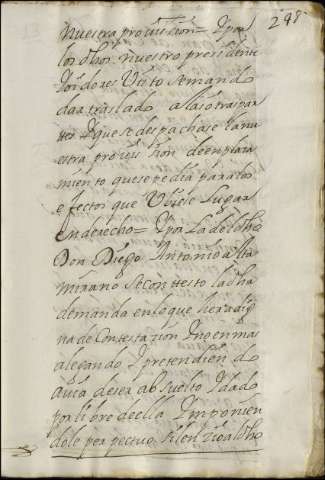 298
nuestra provission = Y por
los dhos nuestro presidente
y oidores Visto se mando
dar traslado a las otras par
tes Y que se despachase la nu
estra provission de enplaça
miento que se pedia para los
efectos que Vbiese Lugar
en derecho = Y por La del dho
Don Diego Antonio alta
mirano se contesto la dha
demanda en lo que hera dig
na de Contestaçion Y no en mas
alegando Y pretendiendo
avia de ser absuelto Y dado
por libre de ella Ymponien
dole perpectuo silençio al dho